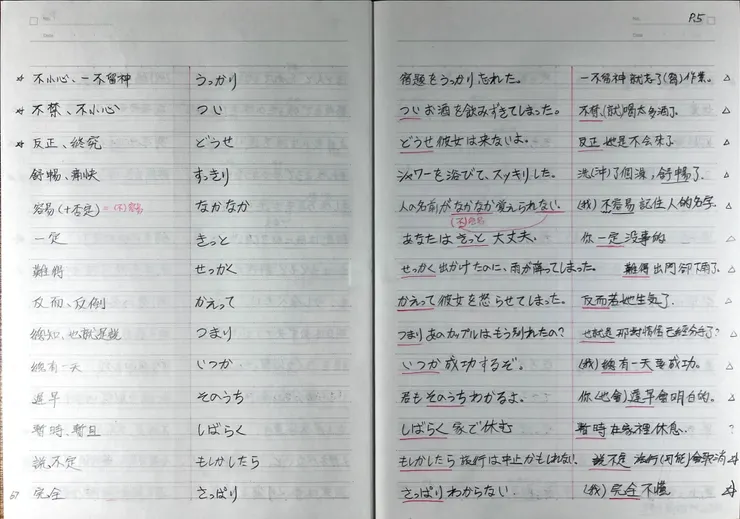 P.5
☆ 不小心、一不留神 うっかり 宿題をうっかり忘れた。 一不留神就忘了(寫)作業。 △
☆ 不禁、不小心 つい ついお酒を飲みすぎてしまった。 不禁(就)喝太多酒了。 △
☆ 反正、終究 どうせ どうせ彼女は来ないよ。 反正她是不會來了 △
舒暢、爽快 すっきり シャワーを浴びて、スッキリした。 洗(沖)了個澡,舒暢了.
容易(+否定)=(不)容易 なかなか 人の名前がなかなか覚えられない. (我)不容易記住人的名字. △
(不)容易
一定 きっと あなたはきっと大丈夫. 你一定沒事的 △
難得 せっかく せっかく出かけたのに、雨が降ってしまった。 難得出門卻下雨了. △
反而、反倒 かえって かえって彼女を怒らせてしまった。 反而惹她生氣了. △
總知、也就是說 つまり つまりあのカップルはもう別れたの? 也就是那對情侶已經分手了? △
總有一天 いつか いつか成功するぞ。 (我)總有一天要成功。 △
遲早 そのうち 君もそのうちわかるよ。 你(也會)遲早會明白的。 △
暫時、暫且 しばらく しばらく家で休む 暫時在家裡休息. ?
說不定 もしかしたら もしかしたら旅行は中止かもしれない. 說不定旅行(可能)會取消 △
67 完全 さっぱり さっぱりわからない. (我)完全不懂 △